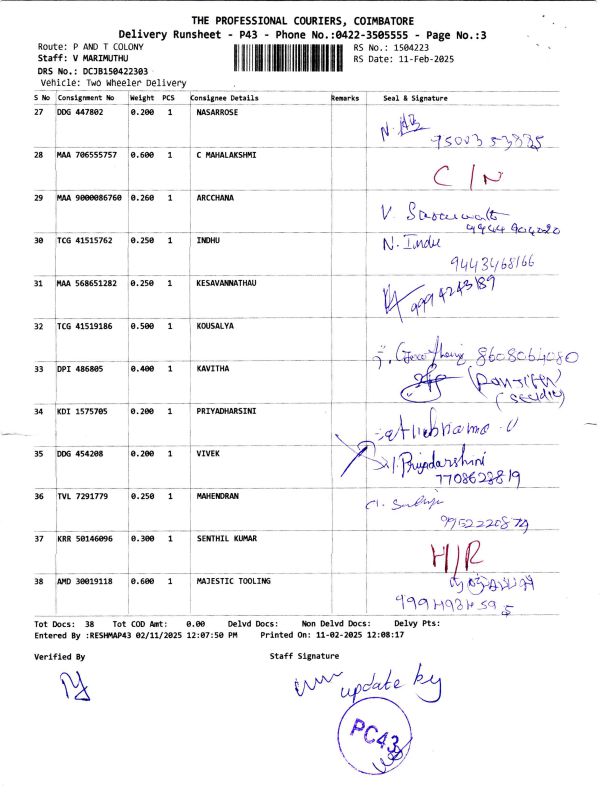 THE PROFESSIONAL COURIERS, COIMBATORE
Delivery Runsheet - P43 - Phone No.:0422-3505555 - Page No.:3
Route: P AND T COLONY RS No.: 1504223
Staff: V MARIMUTHU RS Date: 11-Feb-2025
DRS No.: DCJB150422303
Vehicle: Two Wheeler Delivery
S No Consignment No Weight PCS Consignee Details Remarks Seal & Signature
27 DDG 447802 0.200 1 NASARROSE
28 MAA 706555757 0.600 1 C MAHALAKSHMI
C/N
29 MAA 9000086760 0.260 1 ARCCHANA
V.
30 TCG 41515762 0.250 1 INDHU N. Indu
9443468166
31 MAA 568651282 0.250 1 KESAVANNATHAU
9994243189
32 TCG 41519186 0.500 1 KOUSALYA
8608064080
33 DPI 486805 0.400 1 KAVITHA
34 KDI 1575705 0.200 1 PRIYADHARSINI
35 DDG 454208 0.200 1 VIVEK Priyadarshini
7708623819
36 TVL 7291779 0.250 1 MAHENDRAN
9952220874
37 KRR 50146096 0.300 1 SENTHIL KUMAR
H/R
38 AMD 30019118 0.600 1 MAJESTIC TOOLING
Tot Docs: 38 Tot COD Amt: 0.00 Delvd Docs: Non Delvd Docs: Delvy Pts:
Entered By :RESHMAP43 02/11/2025 12:07:50 PM Printed On: 11-02-2025 12:08:17
Verified By Staff Signature
update by
PC43